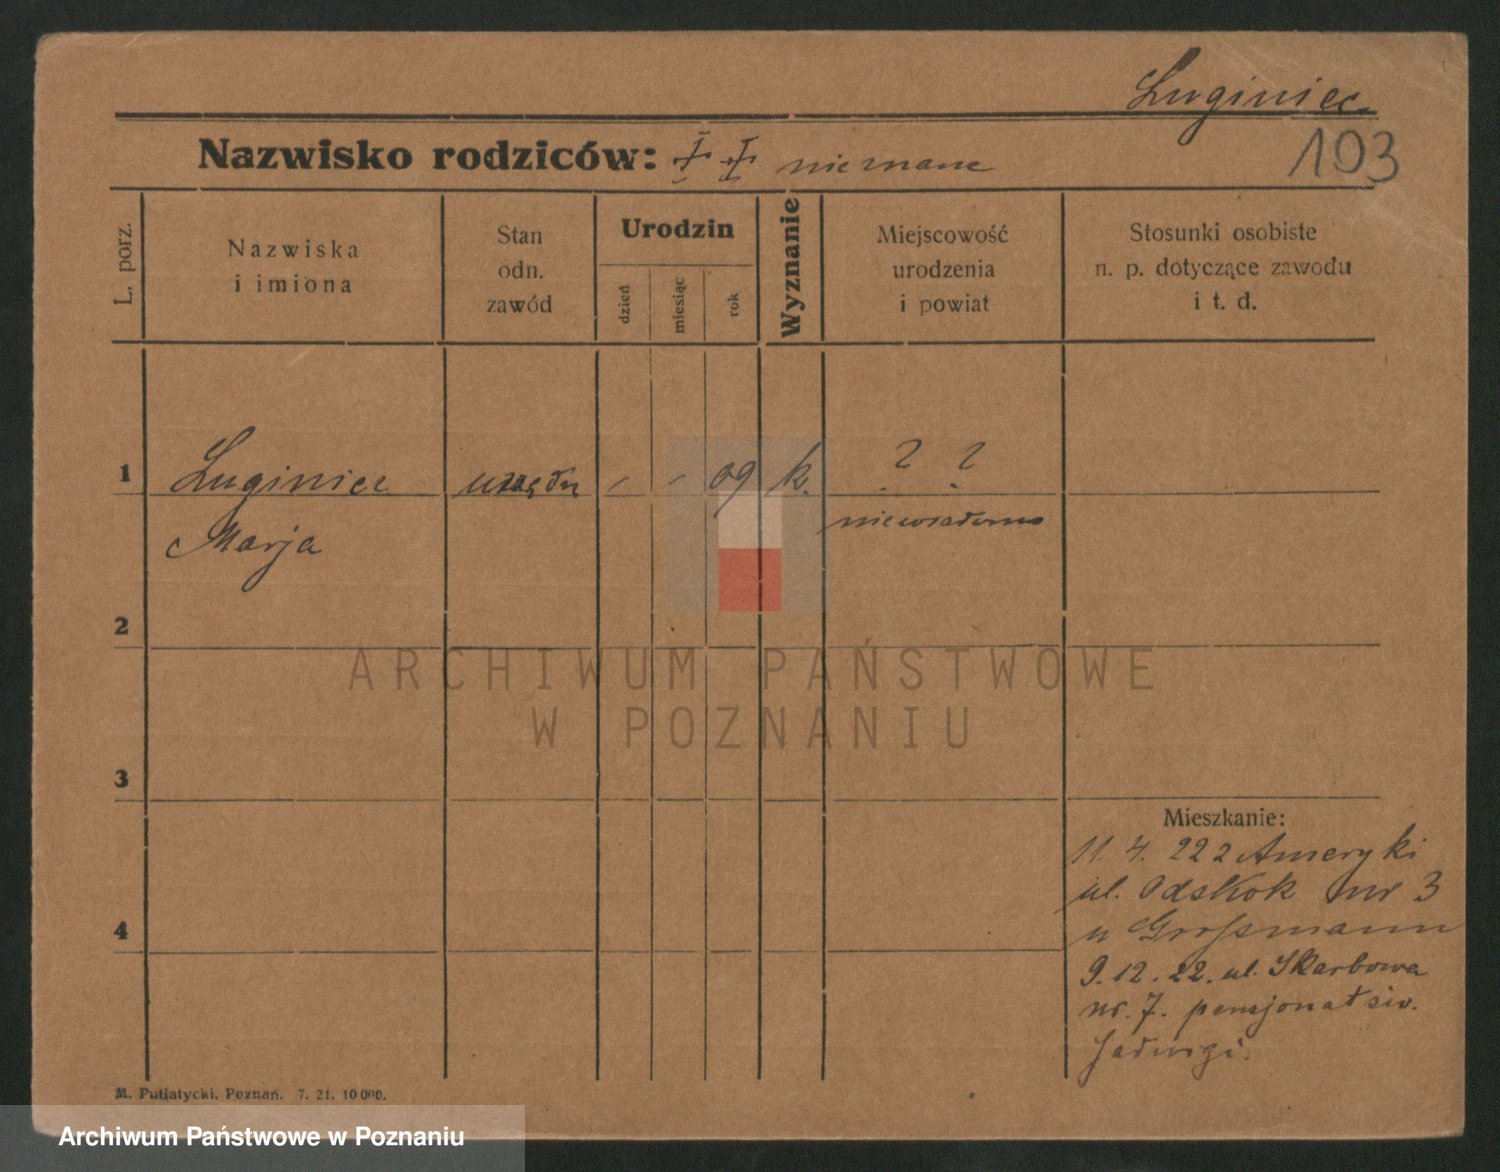 Luginiec
103
Nazwisko rodziców: nieznane
L. porz.
Nazwiska
i imiona
Stan
odn.
zawód
Urodzin
dzień
miesiąc
rok
Wyznanie
Miejscowość
urodzenia
i powiat
Stosunki osobiste
n. p. dotyczące zawodu
i t. d.
1 Luginiec - - 09 k. ? ?
Marja niewiadomo
2
ARCHIWUM PAŃSTWOWE
W POZNANIU
3
Mieszkanie:
11. 4. 22 z Ameryki
ul. Odskok nr 3
4
u Grossmann
9. 12. 22. ul. Skarbowa
nr. 7. pensjonat św.
Jadwigi.
M. Putiatycki, Poznań. 7. 21. 10 000.
Archiwum Państwowe w Poznaniu